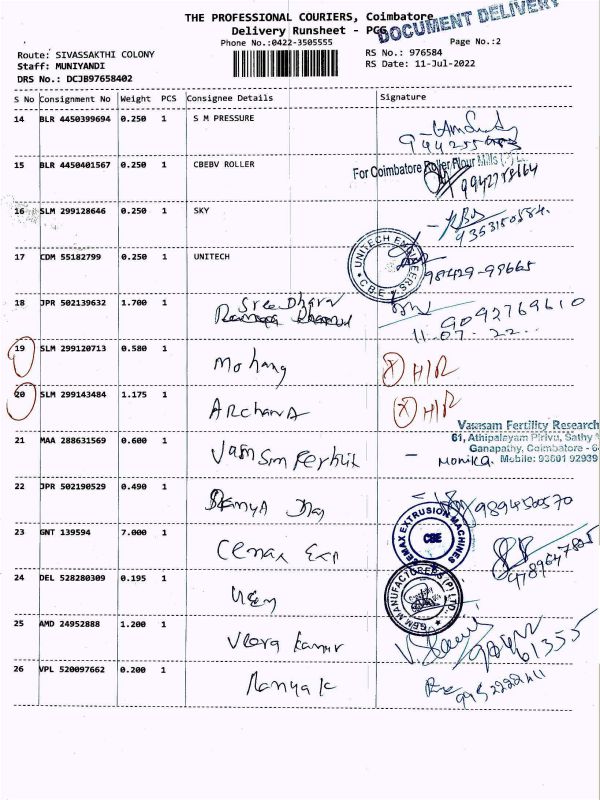 THE PROFESSIONAL COURIERS, Coimbatore
DOCUMENT DELIVERY
Delivery Runsheet - PGG
Phone No.:0422-3505555 Page No.:2
Route: SIVASSAKTHI COLONY RS No.: 976584
Staff: MUNIYANDI RS Date: 11-Jul-2022
DRS No.: DCJB97658402
S No Consignment No Weight PCS Consignee Details Signature
14 BLR 4450399694 0.250 1 S M PRESSURE
15 BLR 4450401567 0.250 1 CBEBV ROLLER
For Coimbatore Roller Flour Mills (P) Ltd
16 SLM 299128646 0.250 1 SKY
17 CDM 55182799 0.250 1 UNITECH
UNITECH ENGINEERS CBE
98429-98665
18 JPR 502139632 1.700 1 Sree Dharv
9092769610
11.07.22
19 SLM 299120713 0.580 1 Mohang H/R
20 SLM 299143484 1.175 1 Archana H/R
21 MAA 288631569 0.600 1
Vamsam Fertility Research
61, Athipalayam Pirivu, Sathy
Ganapathy, Coimbatore - 6
Monika. Mobile: 93601 92939
22 JPR 502190529 0.490 1
9894560570
23 GNT 139594 7.000 1 Cemax Exp
CEMAX EXTRUSION MACHINES CBE
4789647805
24 DEL 528280309 0.195 1
GEM MANUFACTURERS (P) LTD.
25 AMD 24952888 1.200 1 Veera Kumar
61355
26 VPL 520097662 0.200 1 Ramya K